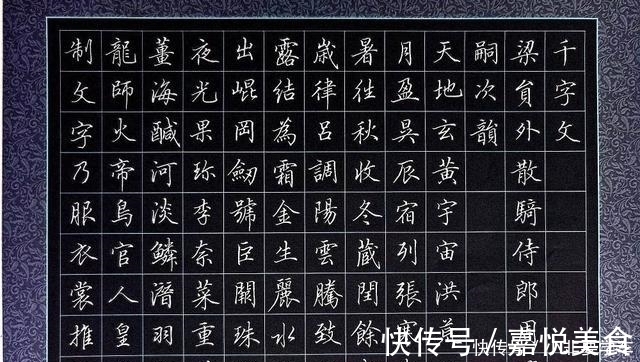 千字文
梁員外散騎侍郎周
嗣次韻
天地玄黃宇宙洪荒
月盈昃辰宿列張寒
暑往秋收冬藏閏餘
歳律呂調陽雲騰致
露結為霜金生麗水
出崐岡劒號巨闕珠
夜光果珍李奈菜重
薑海鹹河淡鱗潛羽
龍師火帝鳥官人皇
制文字乃服衣裳推
快传号 / 嘉悦美食